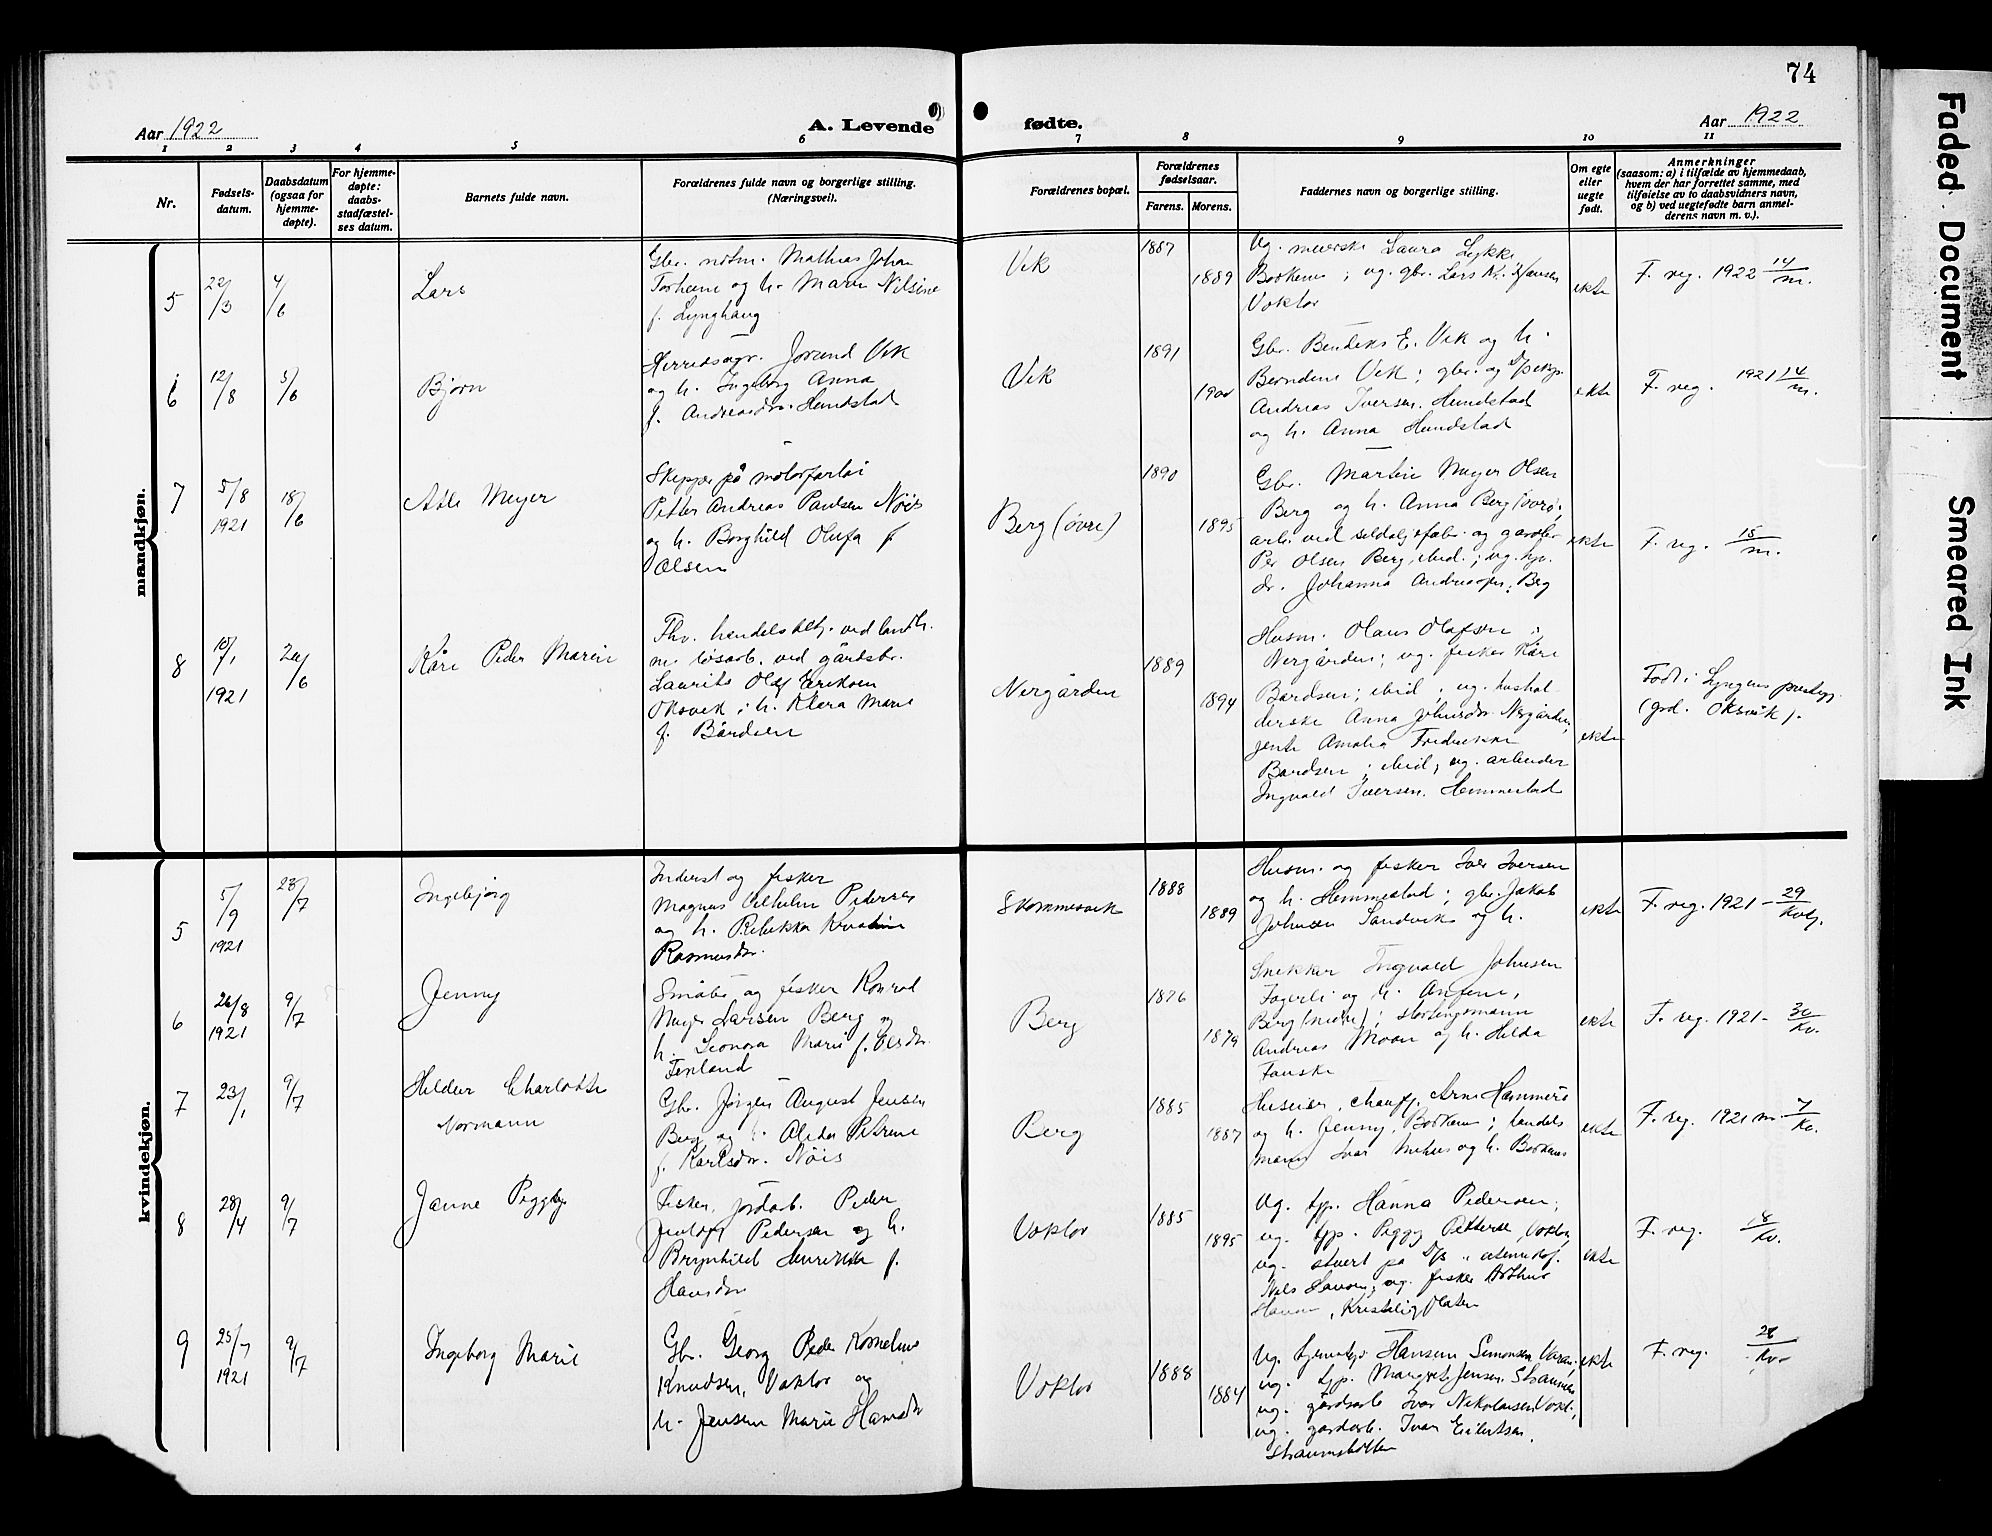 74
Aar 1922
A. Levende
fødte.
Aar 1922
1 2 3 4 5 6 7 8 9 10 11
Nr.
Fødsels-
datum.
Daabsdatum
(ogsaa for
hjemme-
døpte).
For hjemme-
døpte:
daabs-
stadfæstel-
ses datum.
Barnets fulde navn.
Forældrenes fulde navn og borgerlige stilling.
(Næringsvei).
Forældrenes bopæl.
Forældrenes
fødselsaar.
Farens. Morens.
Faddernes navn og borgerlige stilling.
Om egte
eller
uegte
født.
Anmerkninger
(saasom: a) i tilfælde av hjemmedaab,
hvem der har forrettet samme, med
tilføielse av to daabsvidners navn,
og b) ved uegtefødte barn anmel-
derens navn m. v.).
mandkjøn.
5
22/3
4/6
Lars
Mathias Johan
Torheim og h. Maren Nilsine
f. Lynghaug
Vik
1887
1889
Ug. meierske Laura Lykke
ug. gbr. Lars
Voktor
ekte
F. reg. 1922 14/m.
6
12/8
5/6
Bjørn
Herredsagr. Jorund Vik
og h. Ingeborg Anna
f. Andreasdr. Hundstad
Vik
1891
1900
Gbr. Bendiks E. Vik og h.
Berndine Vik; gbr. og
Andreas Iversen Hundstad
og h. Anna Hundstad
ekte
F. reg. 1921 14/m.
7
5/8
1921
18/6
Atle Meyer
Skipper på motorfartøi
Petter Andreas Paulsen Nöis
og h. Borghild Olufa f.
Olsen
Berg (övre)
1890
1895
Gbr. Martin Meyer Olsen
Berg og h. Anna Berg
arb. ved
Per Olsen Berg, ibid.; ug.
Johanna Berg
ekte
F. reg. 15/m.
8
1921
Kåre Peder Marin
løsarb. ved gårdsbr.
Laurits Olaf Eriksen
Oksvik; h. Klara Marie
f. Bårdsen
Nergården
1889
1894
Husm. Olaus Olafsen
Nergården; ug. fisker Kåre
Bardsen; ibid; ug. hushol-
derske Anna Johnsdr. Nergården,
jente Amalia Fredrikke
Bardsen; ibid, ug. arbeider
Ingvald Iversen. Hemmestad
ekte
Født i Lyngens prestegj.
(grd. Oksvik).
kvindekjøn.
5
5/9
1921
23/7
Ingebjörg
Inderst og fisker
Magnus Vilhelm Pedersen
og h. Rebekka Kristine
Rasmusdr.
1888
1889
Husm. og fisker Iver Iversen
og h. Hemmestad; gbr. Jakob
Johnsen Sandvik og h.
ekte
F. reg. 1921 - 29/kvkj.
6
26/8
1921
9/7
Jenny
Småbr. og fisker Konrad
Meyer Larsen Berg og
h. Leonora Marie f. Olsdr.
Finland
Berg
1876
1879
Snekker Ingvald Johnsen
Fagerli og h.
Berg (nedre); stortingsmann
Andreas Moan og h. Hilda
Fauske
ekte
F. reg. 1921 - 30/kv.
7
23/1
9/7
Hildur Charlotte
Normann
Gbr. Jörgen August Jensen
Berg og h. Alida Petrine
f. Karlsdr. Nöis
Berg
1885
1887
Huseier, chauff. Arne Hammerö
og h. Jenny, handels
mann Ivar og h.
ekte
F. reg. 1921 m. 7/kv.
8
28/4
9/7
Janne Peggy
Fisker, jordarb. Peder
Pedersen og h.
Brynhild Henrikka f.
Hansdr.
Voktor
1885
1895
Ug. tjp. Hanna Pedersen;
ug. tjp. Peggy Voktor,
ug. stuert på D/S
ug. fisker Arthur
ekte
F. reg. 8/kv.
9
25/7
1921
9/7
Ingeborg Marie
Gbr. Georg Peder Kornelius
Knudsen, Voktor og
h. Jensen Marie Hansdr.
Voktor
1888
1884
Ug. Hansen Simonsen
ug. tjp. Margret Jensen
ug. gårdsarb. Ivar Nikolaisen
ug. gårdsarb. Ivar Eilertsen,
Straumsbotten
ekte
F. reg. 28/kv.
Faded Document
Smeared Ink